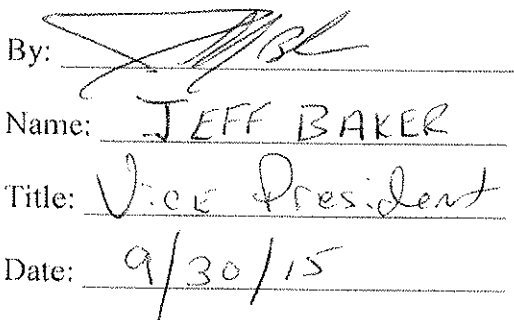 By:
Name: JEFF BAKER
Title: Vice President
Date: 9/30/15